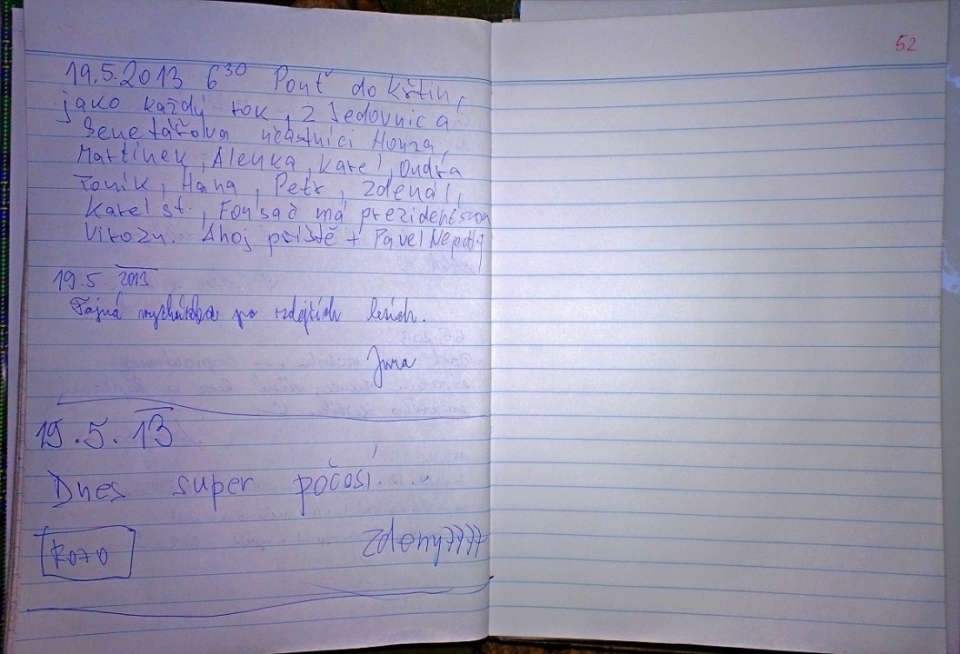 19.5.2013 6³⁰ Pouť do Křtin,
jako každý rok, z Jedovnic a
Senetářova účastníci Honza,
Martínek, Alenka, Karel, Ondra
Toník, Hana, Petr, Zdenál,
Karel st., má prezidentskou
Virozu. Ahoj příště + Pavel
19.5 2013
Fajná vycházka po zdejších lesích.
Jura
19.5.13
Dnes super počosí....
Zdeny7777
52